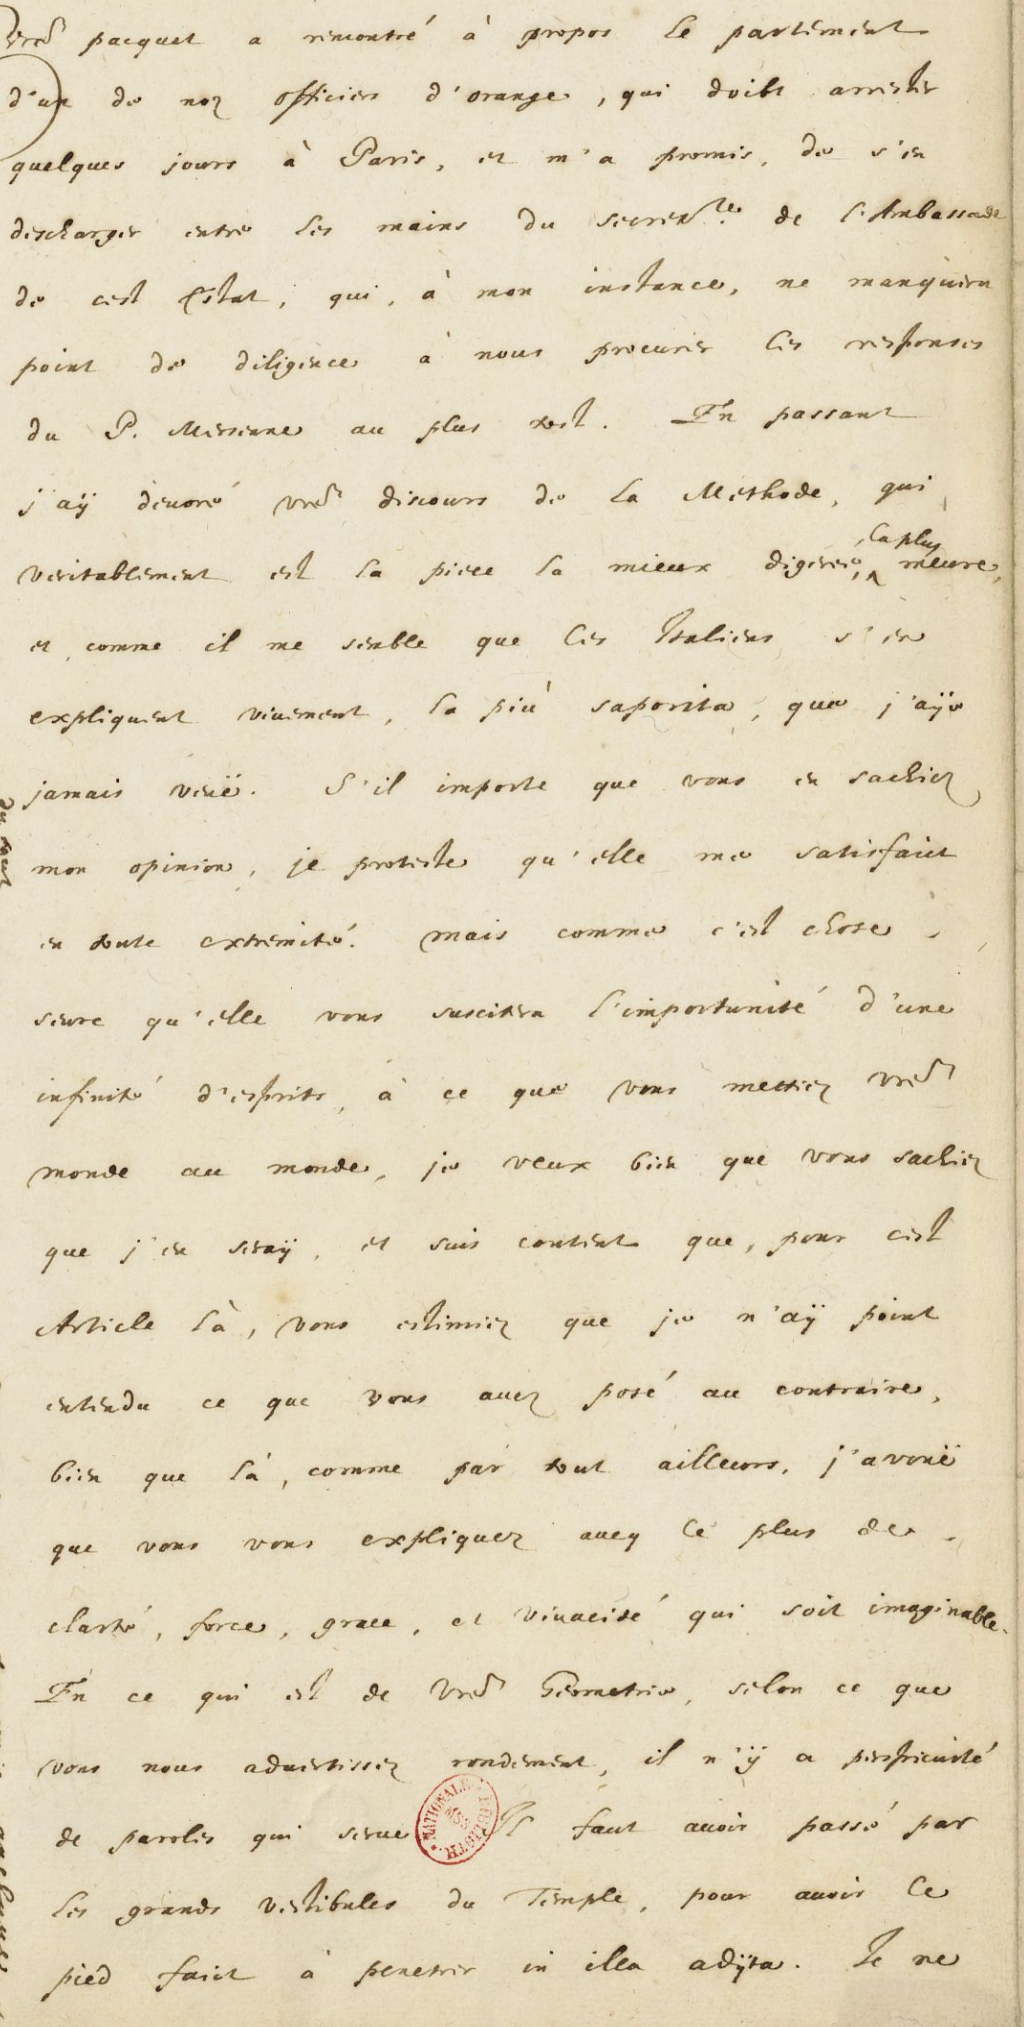 vre pacquet a rencontré à propos le partement
d'un de noz officiers d'orange, qui doibt arrester
quelques jours à Paris, et m'a promis, de s'en
descharger entre les mains du Secret.re de l'Ambassade
de cest Estat, qui, à mon instance, ne manquera
point de diligence à nous procurer les responses
du P. Mersenne au plus tost. En passant
j'aÿ deuoré vre discours de la Methode, qui
veritablement est la piece la mieux digeree, la plus meure,
et comme il me semble que les Italiens s'en
expliquent viuement, la più saporita, que j'aÿe
jamais veuë. S'il importe que vous en sachiez
mon opinion, je proteste qu'elle me satisfaict
en toute extremité. Mais comme c'est chose
seure qu'elle vous suscitera l'importunité d'une
infinité d'esprits, à ce que vous mettiez vre
monde au monde, je veux bien que vous sachiez
que j'en seraÿ, et suis content que, pour cest
Article là, vous estimiez que je n'aÿ point
entendu ce que vous auez posé au contraire,
bien que là, comme par tout ailleurs, j'avouë
que vous vous expliquez aueq le plus de
clarté, force, grace, et viuacité qui soit imaginable.
En ce qui est de vre Geometrie, selon ce que
vous nous aduertissez rondement, il n'ÿ a perspicuité
de paroles qui serue Il faut auoir passé par
les grands vestibules du Temple, pour auoir le
pied faict à penetrer in illa adÿta. Je ne
NATIONALE
MSS
BIBLIOTH.